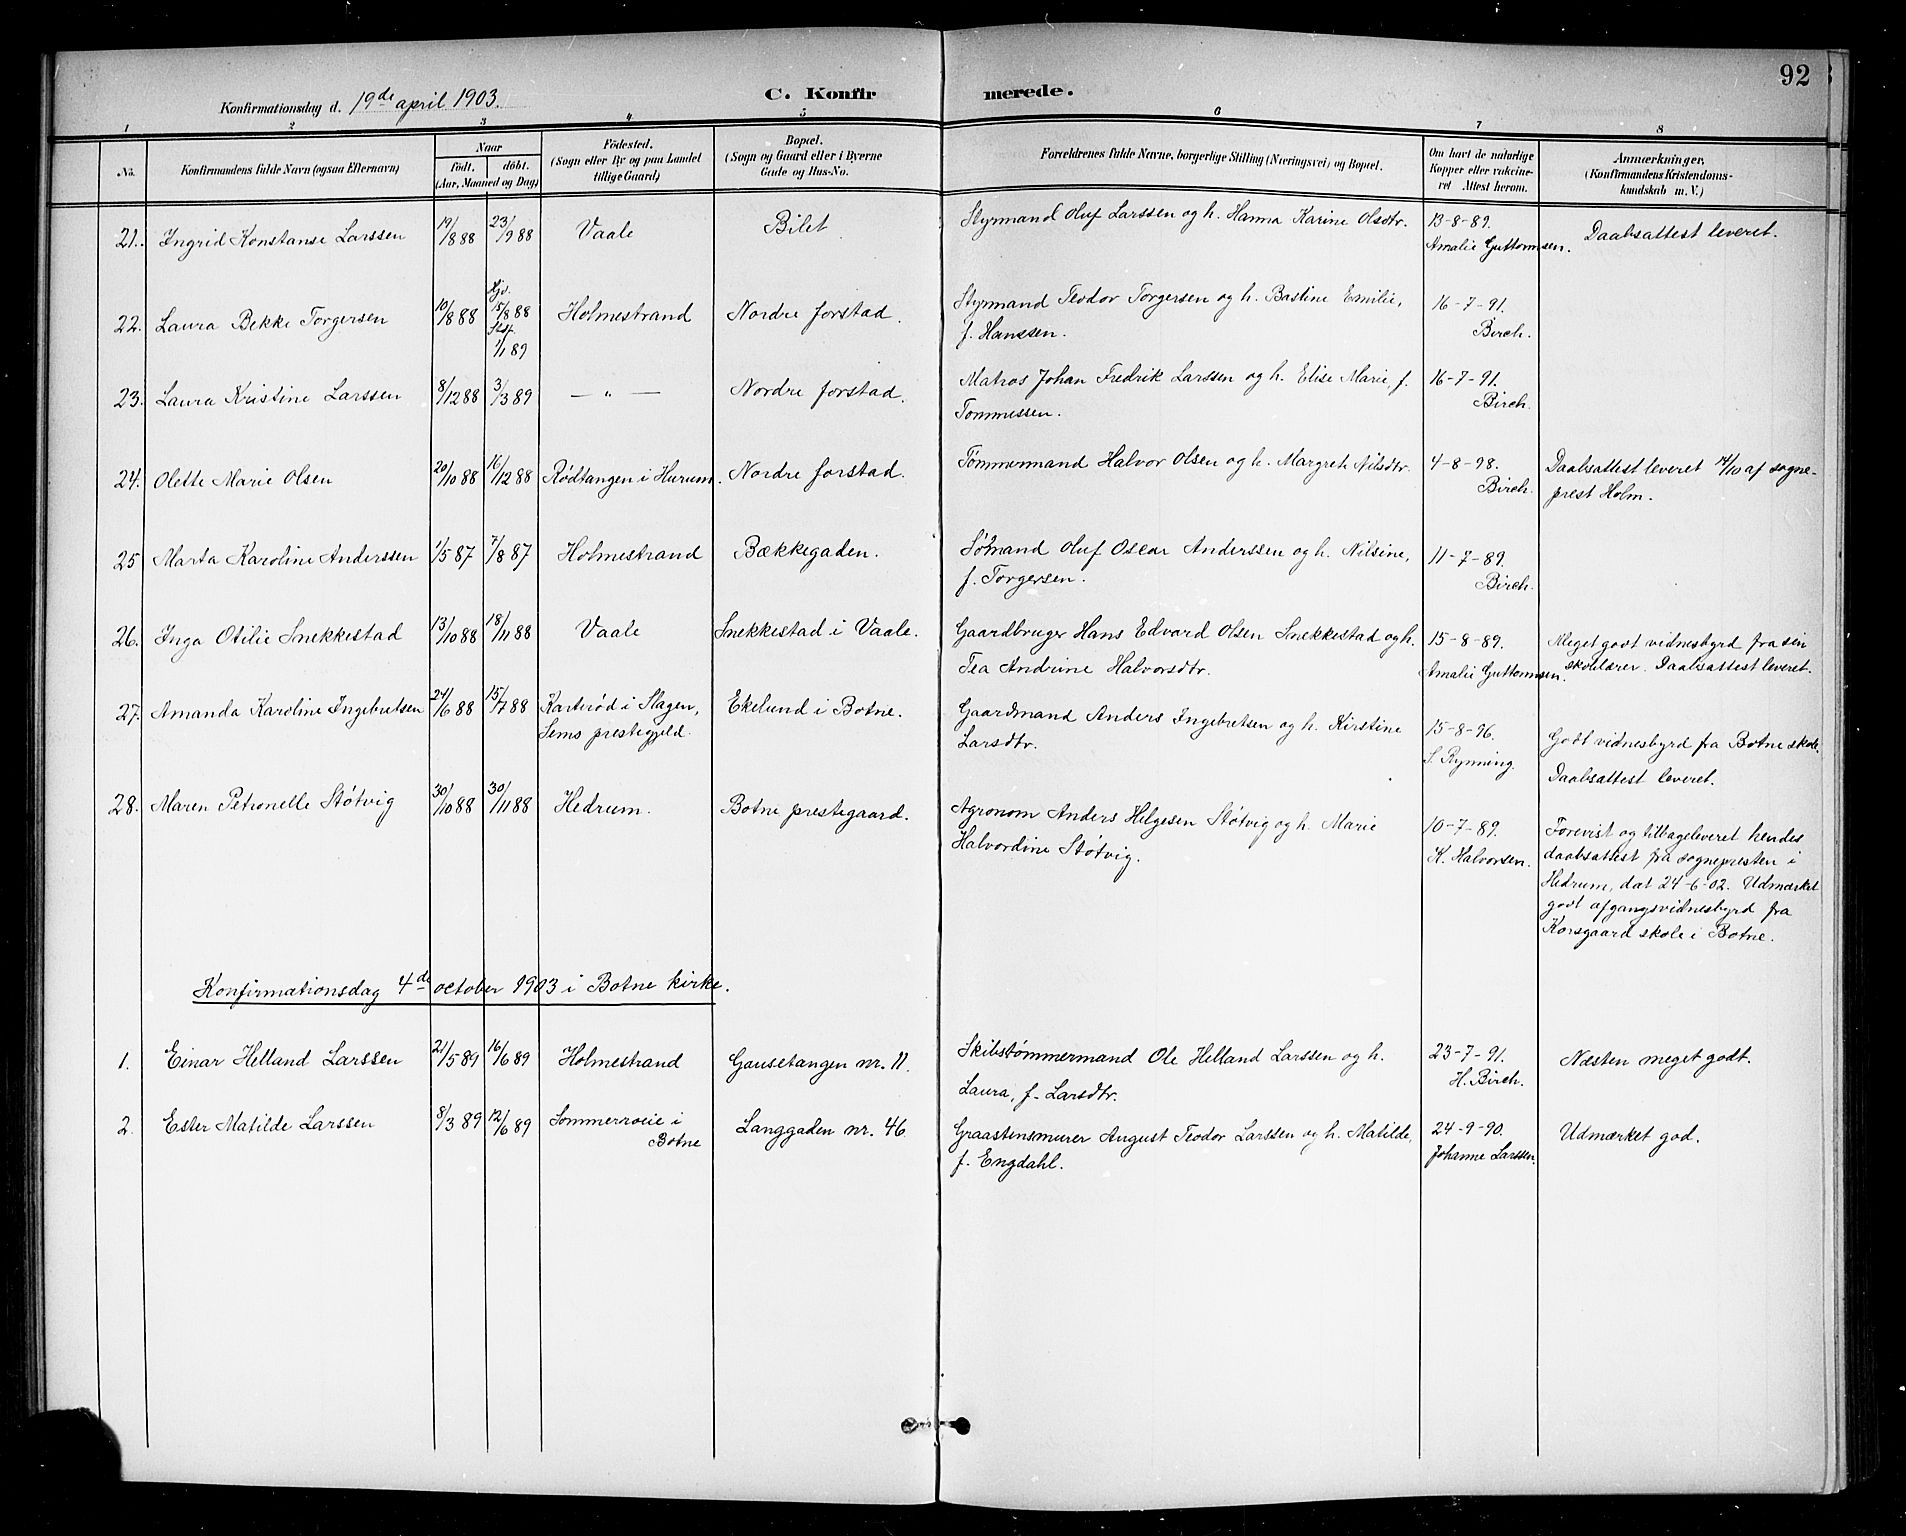 92
Konfirmationsdag d. 19de april 1903.
C. Konfirmerede.
1 2 3 4 5 6 7 8
No.
Konfirmandens fulde Navn (ogsaa Efternavn)
Naar
födt. döbt.
(Aar, Maaned og Dag)
Födested.
(Sogn eller By og paa Landet
tillige Gaard)
Bopæl.
(Sogn og Gaard eller i Byerne
Gade og Hus-No.
Forældrenes fulde Navne, borgerlige Stilling (Næringsvei) og Bopæl.
Om havt de naturlige
Kopper eller vakcine-
ret Attest herom.
Anmærkninger.
(Konfirmandens Kristendoms-
kundskab m. V.)
21. Ingrid Konstanse Larssen 19/8 88 23/9 88 Vaale Bilet Styrmand Oluf Larssen og h. Hanna Karine Olsdtr. 13-8-89. Daabsattest leveret.
Amalie Guttormsen.
22. Laura Bekke Torgersen 10/8 88 Hjd. 15/8 88 Holmestrand Nordre forstad. Styrmand Teodor Torgersen og h. Bastine Emilie, 16-7-91.
Stsf. 1/1 89 f. Hanssen. Birch.
23. Laura Kristine Larssen 8/12 88 3/3 89 — " — Nordre forstad. Matros Johan Fredrik Larssen og h. Elise Marie, f. 16-7-91.
Tommessen. Birch.
24. Olette Marie Olsen 20/10 88 16/12 88 Rødtangen i Hurum. Nordre forstad. Tømmermand Halvor Olsen og h. Margreth Nilsdtr. 4-8-98. Daabsattest leveret /10 af sogne-
Birch. prest Holm.
25 Marta Karoline Anderssen 1/5 87 7/8 87 Holmestrand Bækkegaden. Sømand Oluf Oscar Anderssen og h. Nilsine, 11-7-89.
f. Torgersen. Birch.
26. Inga Otilie Snekkestad 13/10 88 18/11 88 Vaale Snekkestad i Vaale. Gaardbruger Hans Edvard Olsen Snekkestad og h. 15-8-89. Meget godt vidnesbyrd fra sin
Tea Andrine Halvorsdtr. Amalie Guttormsen. skolelærer. Daabsattest leveret.
27. Amanda Karoline Ingebretsen 24/6 88 15/7 88 Karterød i Slagen, Ekelund i Botne. Gaardmand Anders Ingebretsen og h. Kirstine 15-8-96. Godt vidnesbyrd fra Botne skole.
Sems prestegjeld. Larsdtr. S. Rynning. Daabsattest leveret.
28. Maren Petronelle Støtvig 30/10 88 30/11 88 Hedrum. Botne prestegaard. Agronom Anders Helgesen Støtvig og h. Marie 10-7-89. Forevist og tilbageleveret hendes
Halvordine Støtvig. K. Halvorsen. daabsattest fra sognepresten i
Hedrum, dat 24-6-02. Udmærket
godt afgangsvidnesbyrd fra
Korsgaard skole i Botne.
Konfirmationsdag 4de october 1903 i Botne kirke.
1. Einar Helland Larssen 21/5 89 16/6 89 Holmestrand Gausetangen nr. 11. Skibstømmermand Ole Helland Larssen og h. 23-7-91. Næsten meget godt.
Laura, f. Larsdtr. H. Birch.
2. Ester Matilde Larssen 8/3 89 12/6 89 Sommerroeie i Langgaden nr. 46 Graastensmurer August Teodor Larssen og h. Matilde, 24-9-90. Udmærket god.
Botne f. Engdahl. Johanne Larssen.